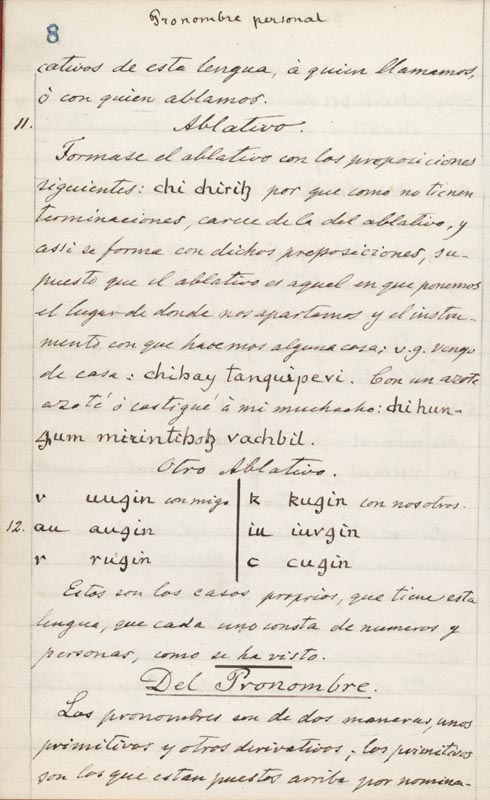 Pronombre personal
8
cativos de esta lengua, à quien llamamos,
ò con quien ablamos.
11. Ablativo.
Formase el ablativo con las preposiciones
siguientes: chi chiriꜩ por que como no tienen
terminaciones, carece de la del ablativo, y
assi se forma con dichas preposiciones, su-
puesto que el ablativo es aquel en que ponemos
el lugar de donde nos apartamos y el instru-
mento con que hacemos alguna cosa; v.g. vengo
de casa: chibay tanquipevi. Con un azote
azoté ò castigué à mi muchacho: chihun-
vachbil.
Otro Ablativo.
v uugin conmigo | k kugin con nosotros.
12. au augin | iu iuvgin
r rugin | c cugin
Estos son los casos proprios, que tiene esta
lengua, que cada uno consta de numeros y
personas, como se ha visto.
Del Pronombre.
Los pronombres son de dos maneras, unos
primitivos y otros derivativos; los primitivos
son los que estan puestos arriba por nomina-